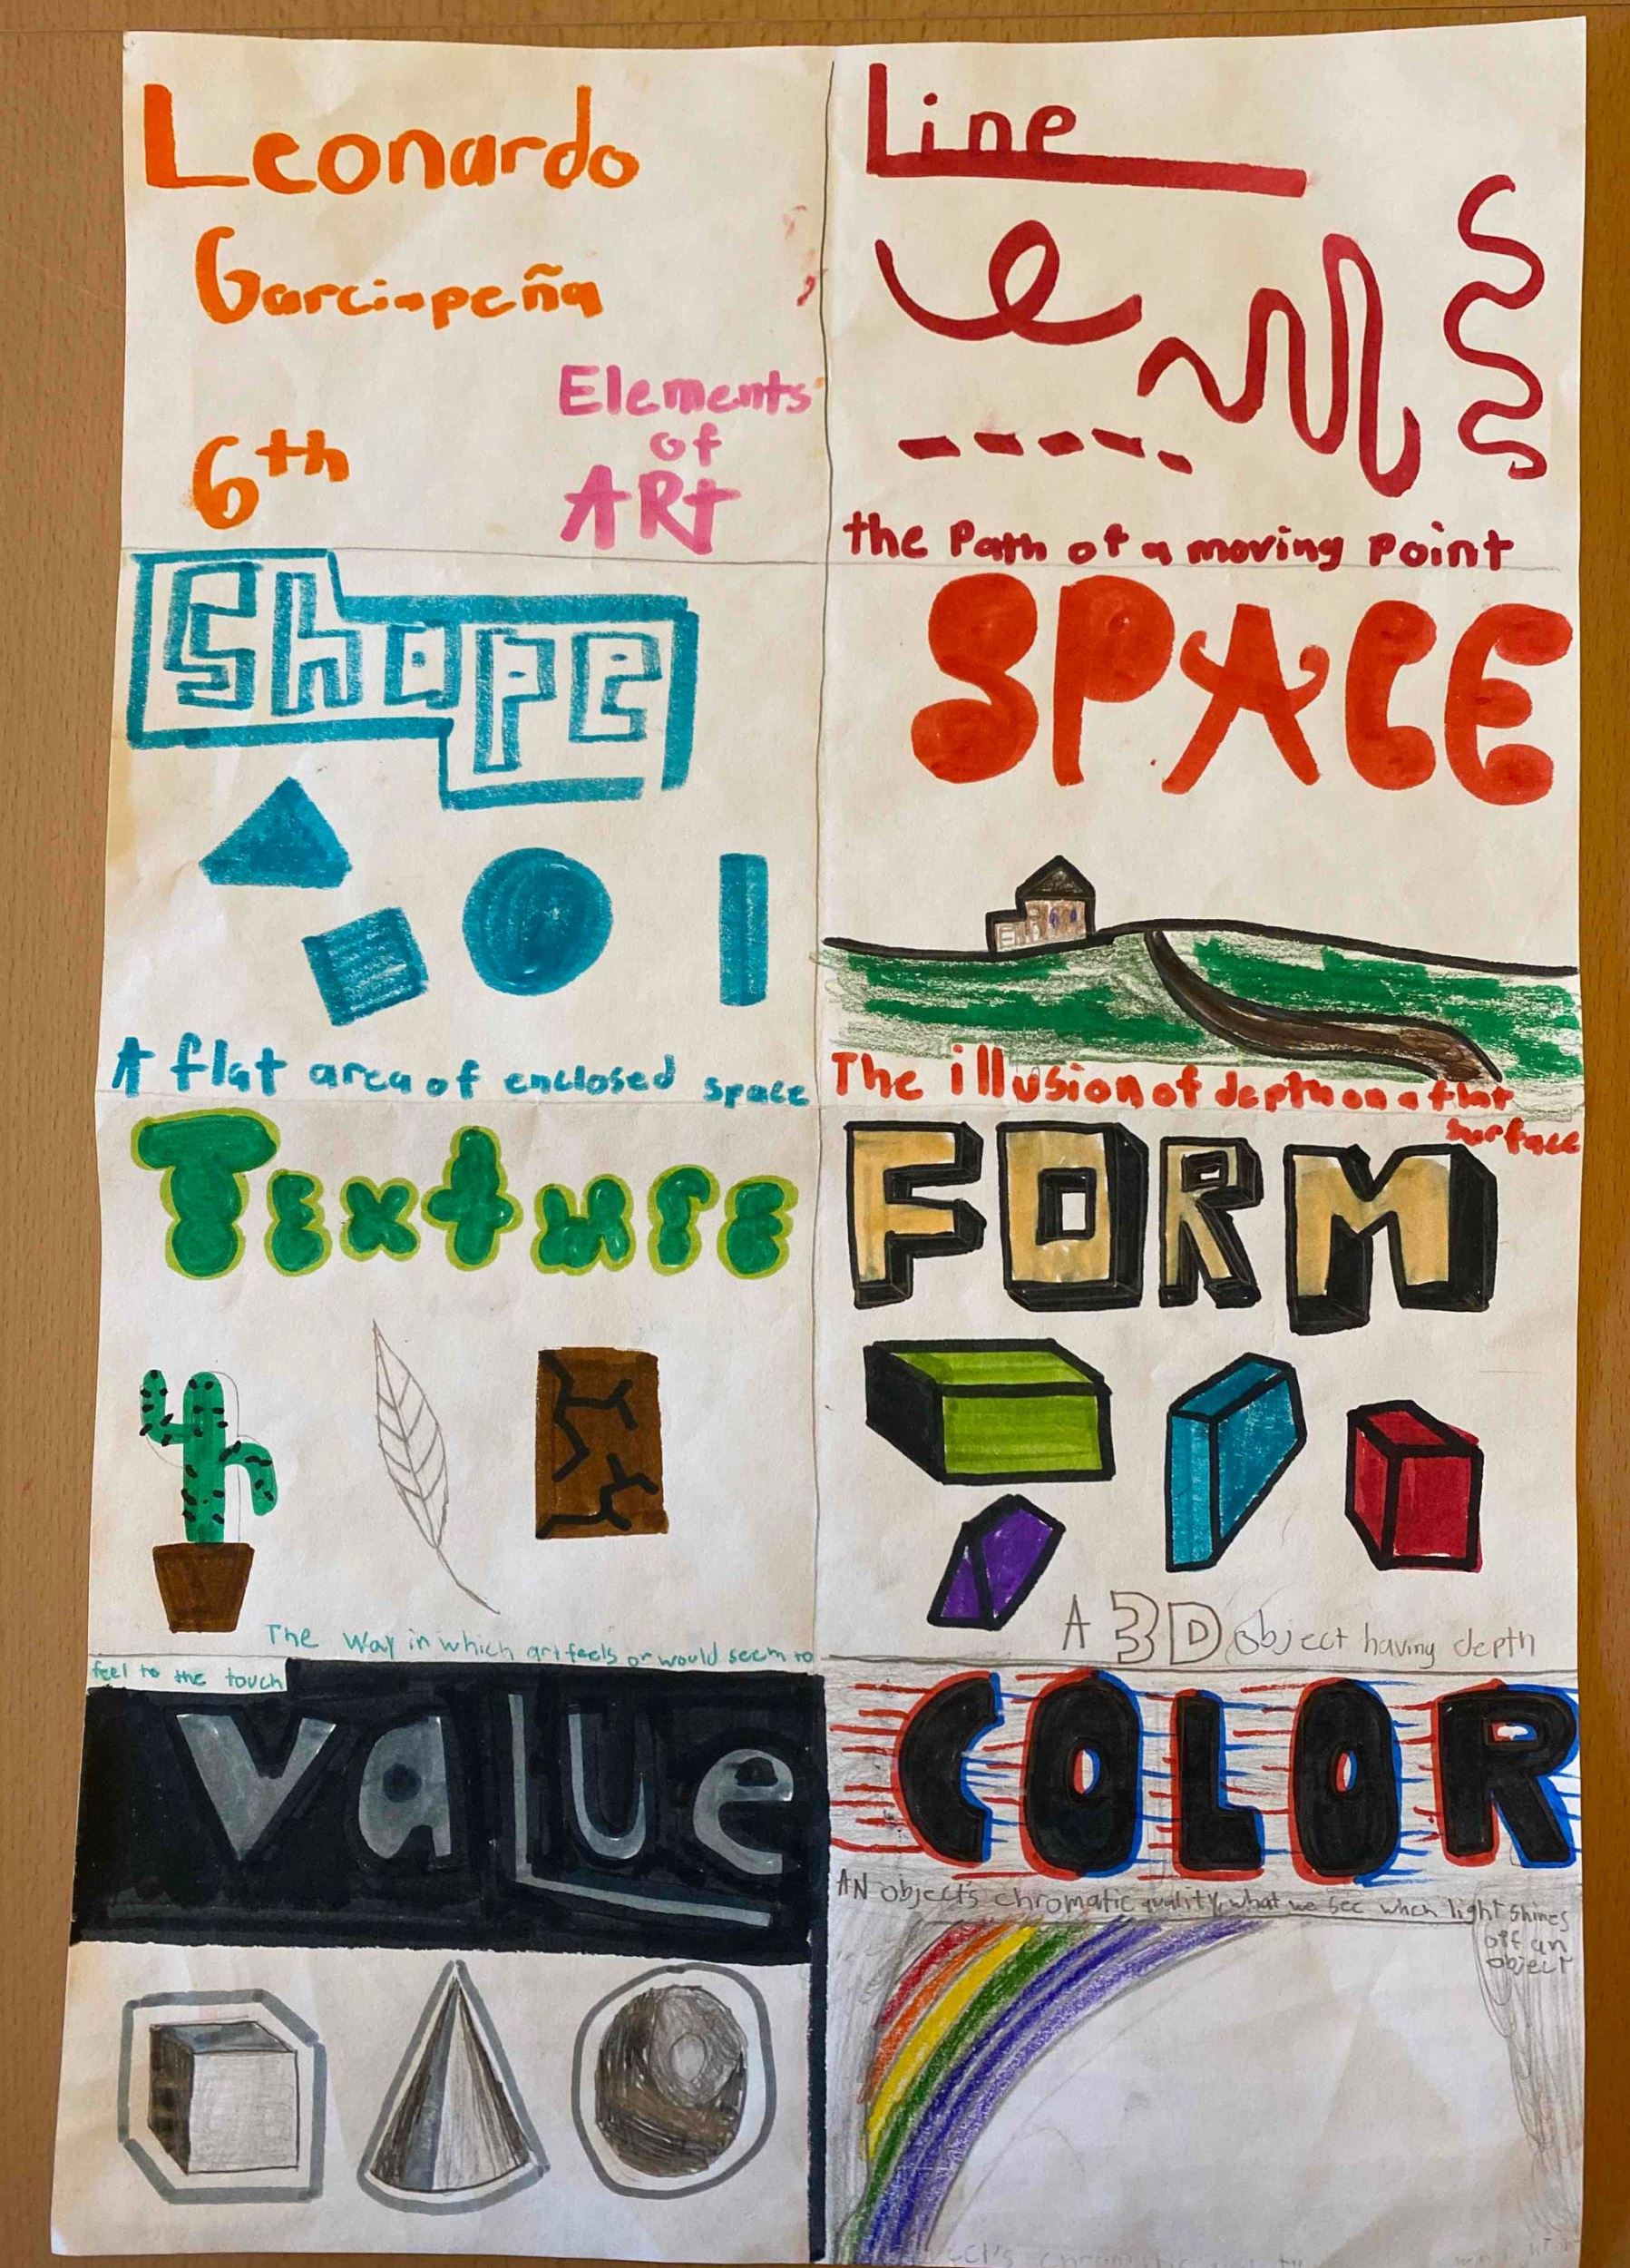 Leonardo
Garciapeña
6th
Elements
of
ARt
Line
the Path of a moving Point
Shape
A flat area of enclosed space
SPACE
The illusion of depth on a flat
surface
Texture
The way in which art feels or would seem to
feel to the touch
FORM
A 3D object having depth
Value
COLOR
AN object's chromatic quality, what we see when light shines
off an
object